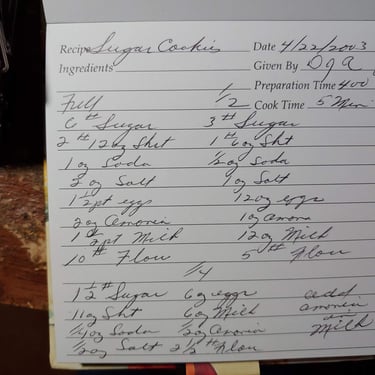 Recipe Sugar Cookies Date 4/22/2003
Ingredients Given By
Preparation Time 400
Full 1/2 Cook Time 5 Min
6 # Sugar 3 # Sugar
2 # 12 oz Sht 1 # 6 oz Sht
1 oz Soda 1/2 oz Soda
2 oz Salt 1 oz Salt
1 1/2 pt eggs 12 oz eggs
2 oz Amonia 1 oz Amona
1 1/2 pt Milk 12 oz Milk
10 # Flour 5 # Flour
1/4
1 1/2 # Sugar 6 oz eggs add
11 oz Sht 6 oz Milk amonia
1/4 oz Soda 1/2 oz Amonia Milk
1/2 oz Salt 2 1/2 # Flour